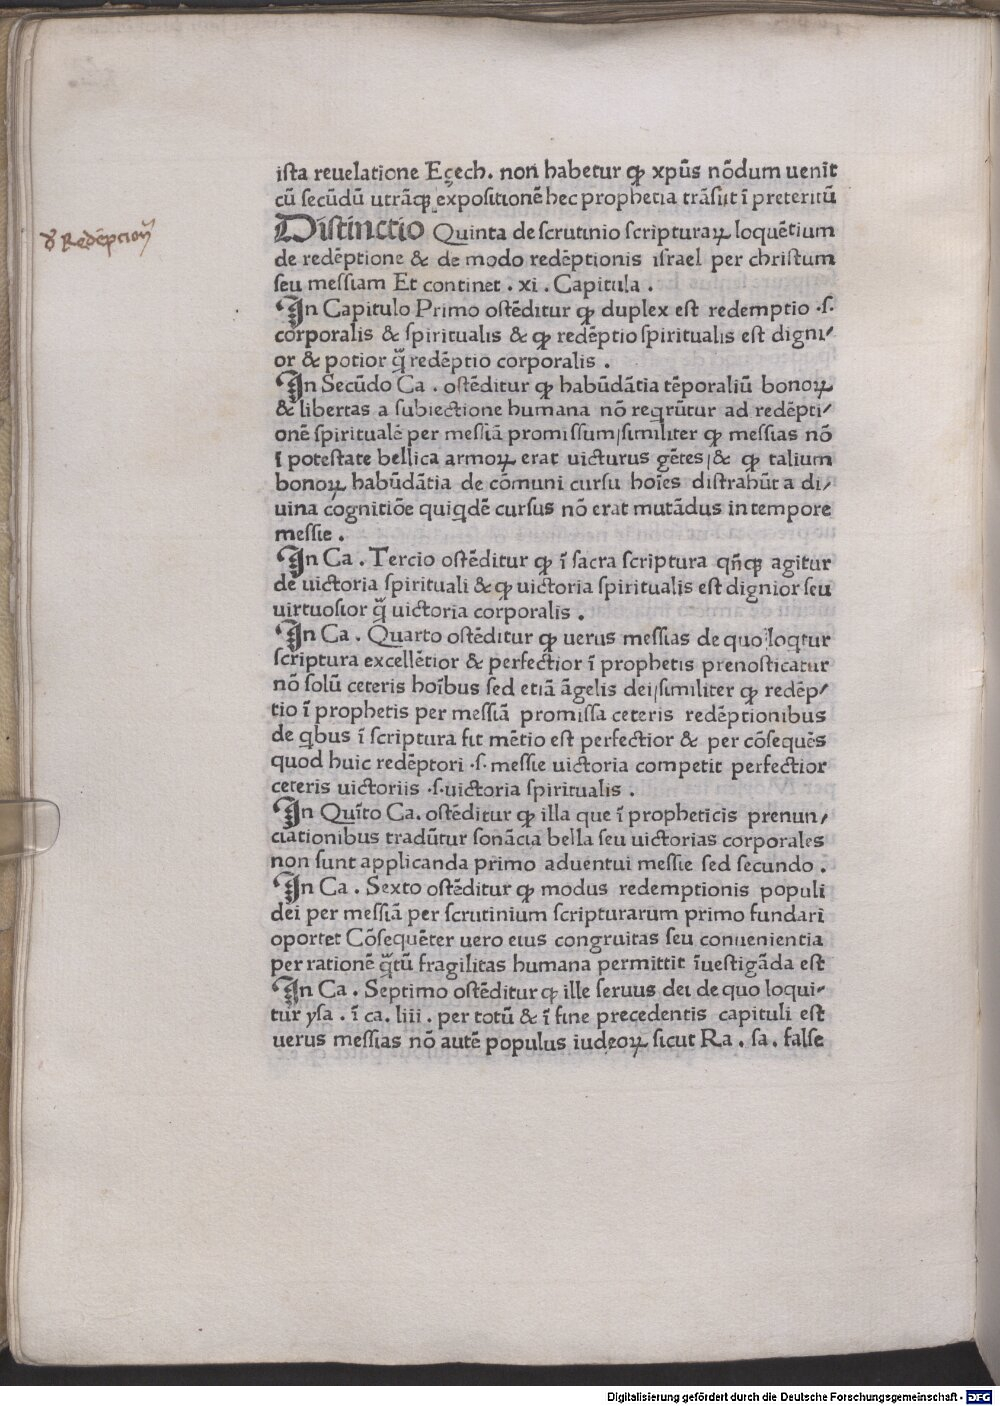 ista reuelatione Eçech. non habetur ꝙ xp̄us nōdum uenit
cū secūdū utrāqꝫ expositionē hec prophetia trāsiit ī preteritū
Distinctio Quinta de scrutinio scripturaꝝ loquētium
de redēptione & de modo redēptionis israel per christum
seu messiam Et continet . xi . Capitula .
In Capitulo Primo ostēditur ꝙ duplex est redemptio .s.
corporalis & spiritualis & ꝙ redēptio spiritualis est digni/
or & potior q̄̃ redēptio corporalis .
In Secūdo Ca . ostēditur ꝙ habūdātia tēporaliū bonoꝝ
& libertas a subiectione humana nō reqrūtur ad redēpti/
onē spiritualē per messiā promissum/similiter ꝙ messias nō
ī potestate bellica armoꝝ erat uicturus gētes/& ꝙ talium
bonoꝝ habūdātia de cōmuni cursu hoīes distrahūt a di/
uina cognitiōe quiqdē cursus nō erat mutādus in tempore
messie .
In Ca . Tercio ostēditur ꝙ ī sacra scriptura qn̄qꝫ agitur
de uictoria spirituali & ꝙ uictoria spiritualis est dignior seu
uirtuosior q̄̃ uictoria corporalis .
In Ca . Quarto ostēditur ꝙ uerus messias de quo loqtur
scriptura excellētior & perfectior ī prophetis prenosticatur
nō solū ceteris hoībus sed etiā āgelis dei/similiter ꝙ redēp/
tio ī prophetis per messiā promissa ceteris redēptionibus
de qbus ī scriptura fit mētio est perfectior & per cōsequēs
quod huic redēptori .s. messie uictoria competit perfectior
ceteris uictoriis .s.uictoria spiritualis .
In Quīto Ca. ostēditur ꝙ illa que ī propheticis prenun/
ciationibus tradūtur sonācia bella seu uictorias corporales
non sunt applicanda primo aduentui messie sed secundo .
In Ca . Sexto ostēditur ꝙ modus redemptionis populi
dei per messiā per scrutinium scripturarum primo fundari
oportet Cōsequēter uero eius congruitas seu conuenientia
per rationē q̄̃tū fragilitas humana permittit īuestigāda est
In Ca . Septimo ostēditur ꝙ ille seruus dei de quo loqui/
tur ysa . ī ca. liii . per totū & ī fine precedentis capituli est
uerus messias nō autē populus iudeoꝝ sicut Ra . sa . false
Redēpcion
Digitalisierung gefördert durch die Deutsche Forschungsgemeinschaft - DFG